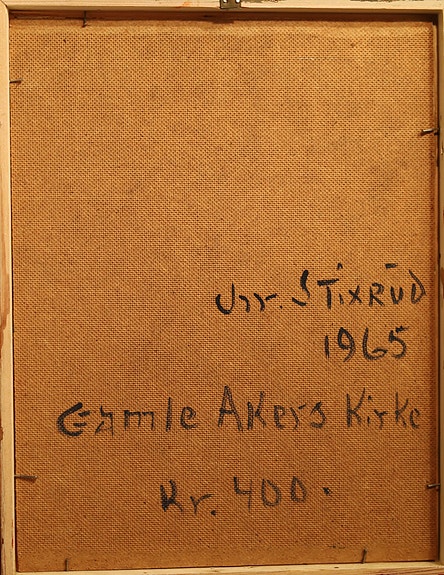 STIXRUD
1965
Gamle Akers Kirke
Kr. 400.